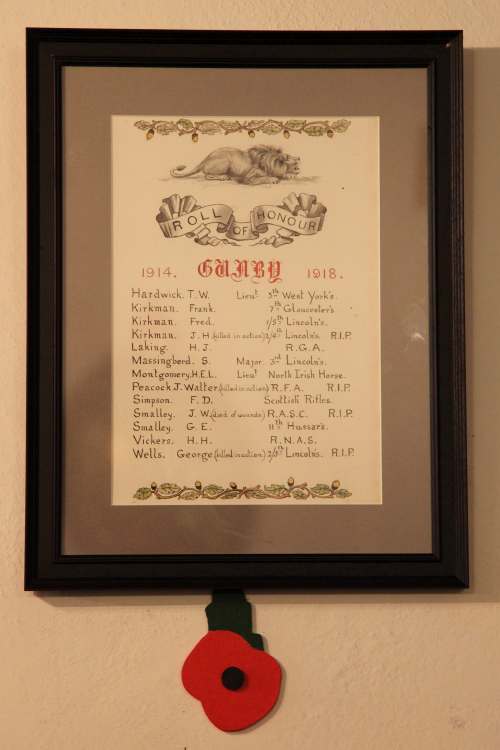 ROLL OF HONOUR
1914. GUNBY 1918.
Hardwick. T.W. Lieut 5th West York's.
Kirkman. Frank. 7th Gloucester's
Kirkman. Fred. 1/5th Lincoln's.
Kirkman. J.H. (killed in action) 2/4th Lincoln's. R.I.P.
Laking. H.J. R.G.A.
Massingberd. S. Major. 3rd Lincoln's.
Montgomery. H.E.L. Lieut North Irish Horse.
Peacock J. Walter. (killed in action) R.F.A. R.I.P.
Simpson. F.D. Scottish Rifles.
Smalley. J.W. (died of wounds) R.A.S.C. R.I.P.
Smalley. G.E. 11th Hussar's.
Vickers. H.H. R.N.A.S.
Wells. George (killed in action) 2/5th Lincoln's. R.I.P.